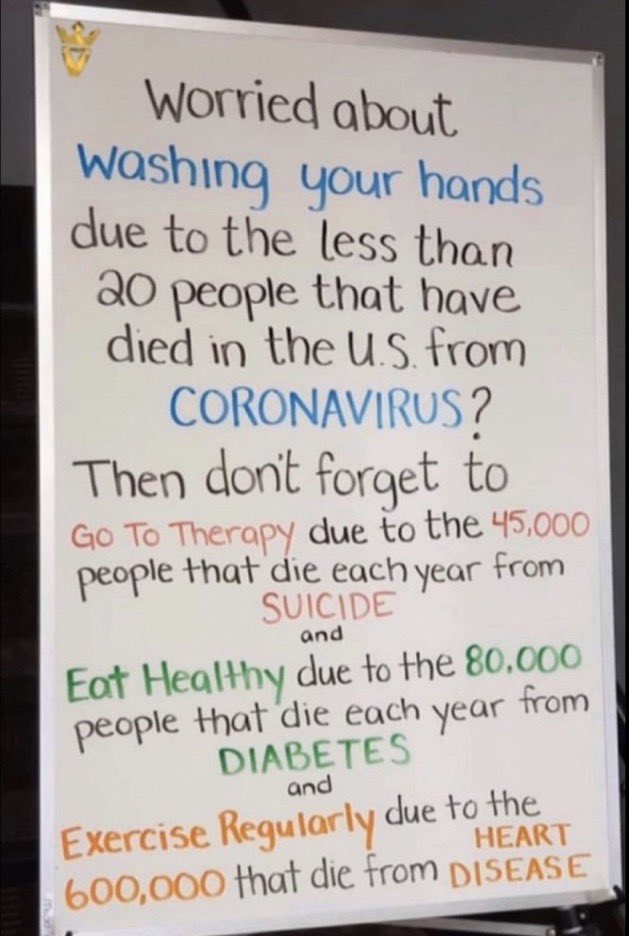 Worried about
Washing your hands
due to the less than
20 people that have
died in the U.S. from
CORONAVIRUS?
Then don't forget to
Go To Therapy due to the 45,000
people that die each year from
SUICIDE
and
Eat Healthy due to the 80,000
people that die each year from
DIABETES
and
Exercise Regularly due to the
600,000 that die from HEART
DISEASE